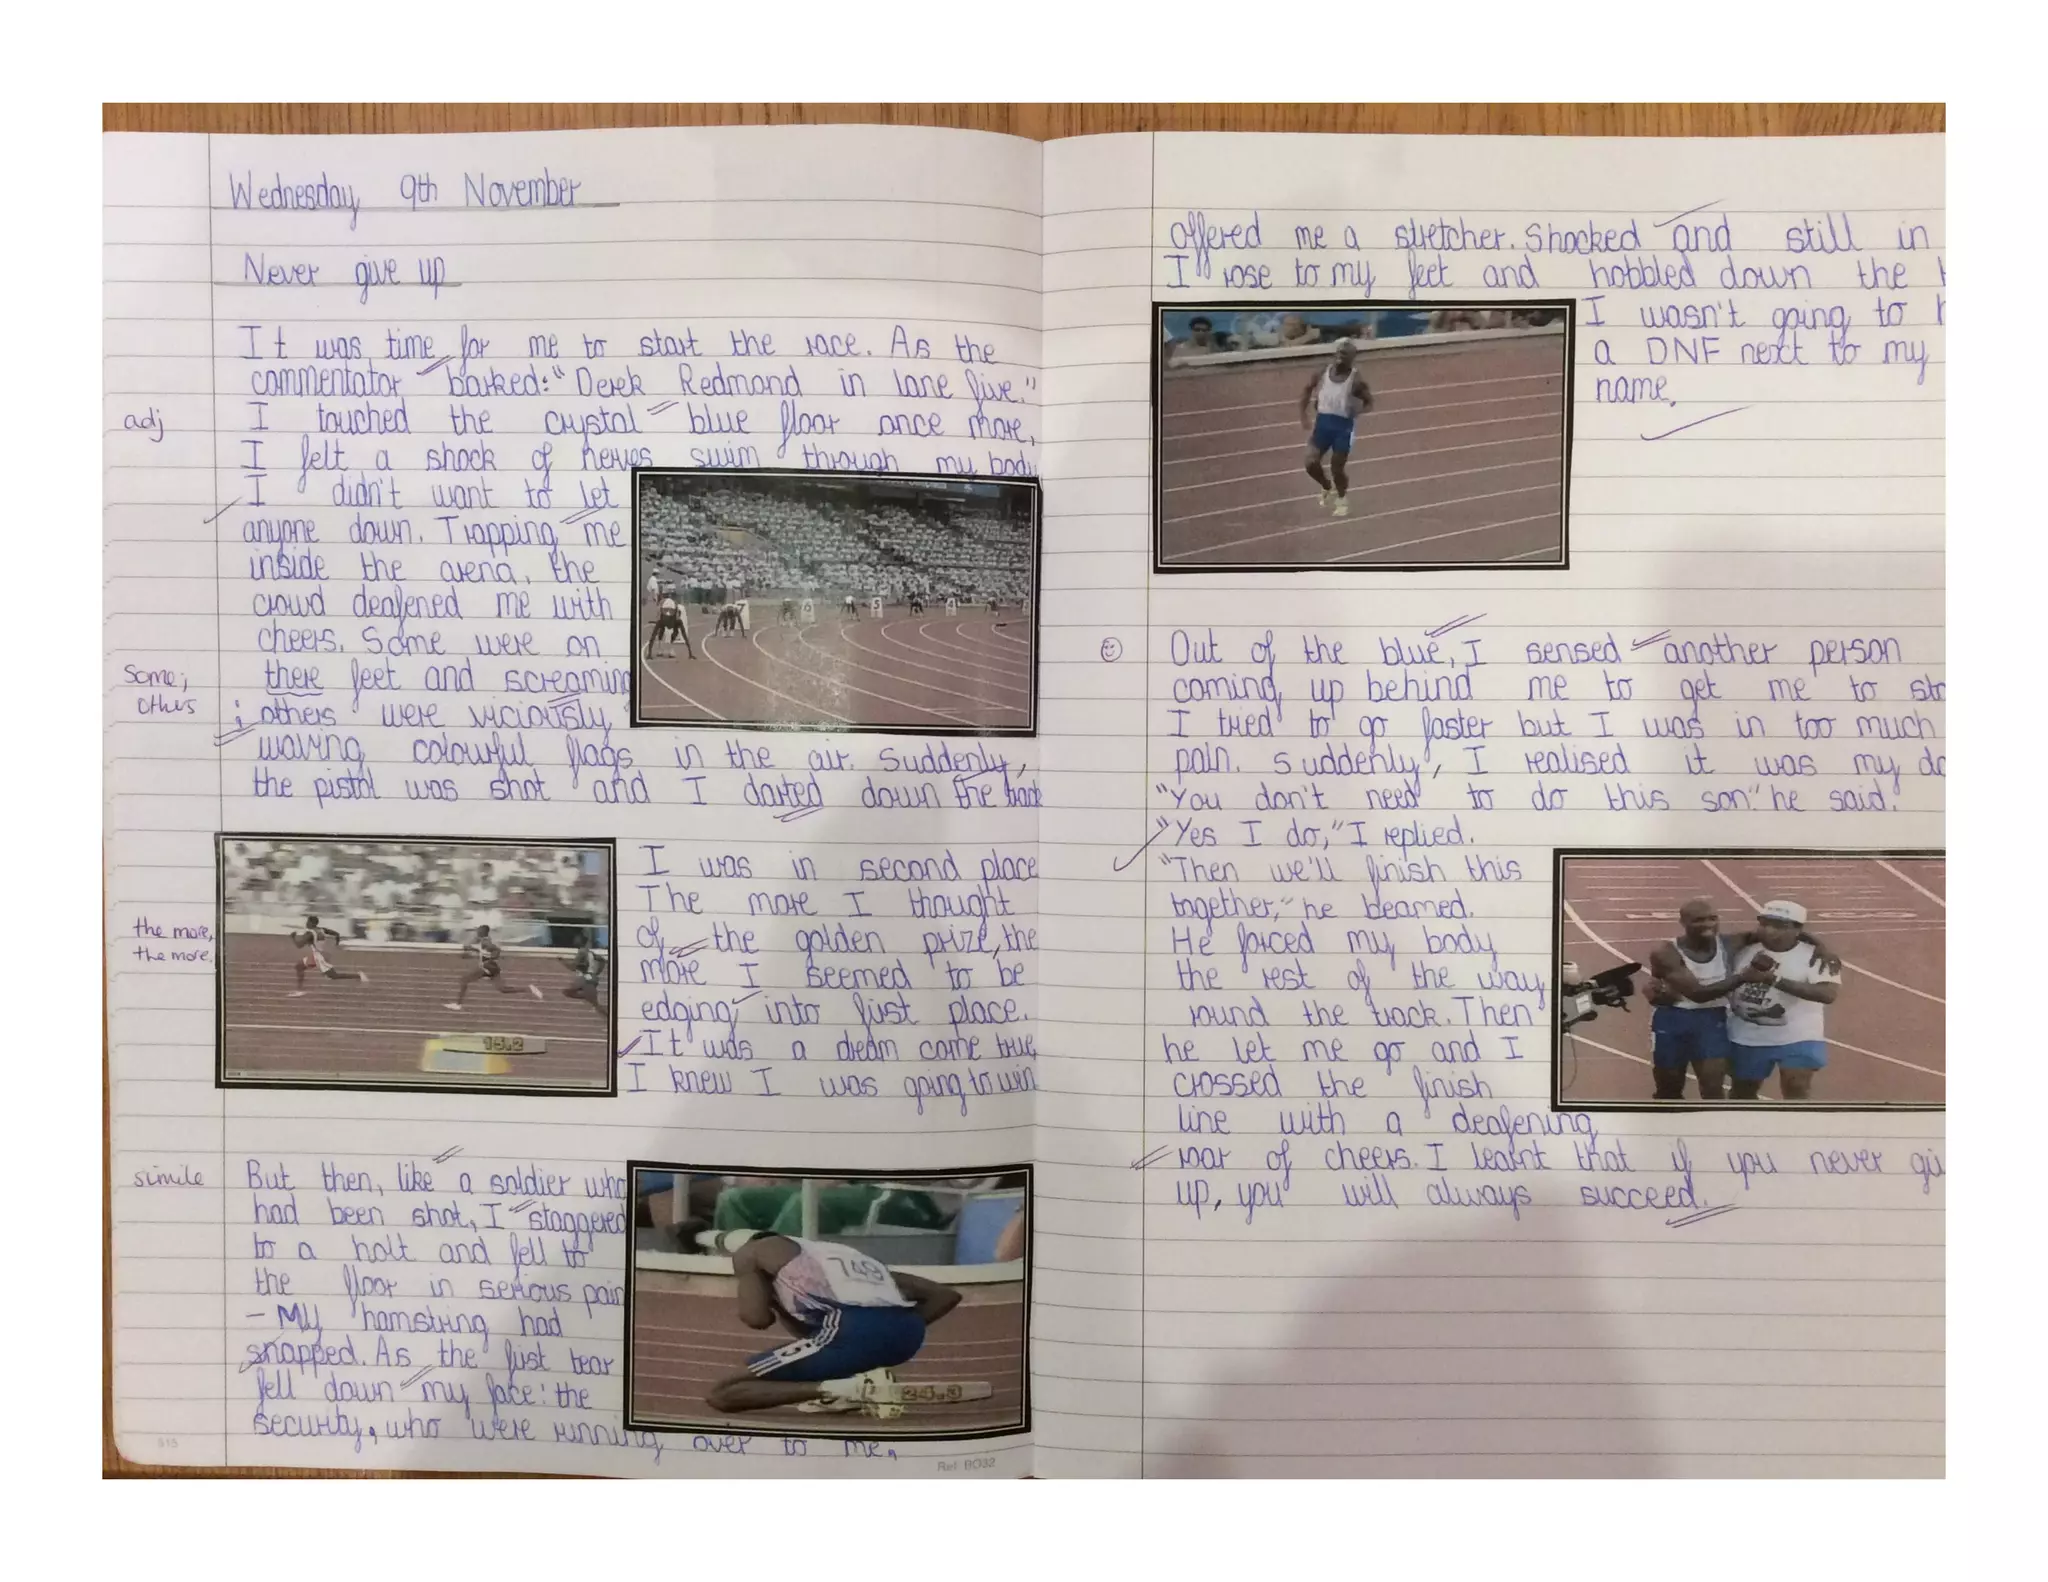 Wednesday 9th November
Never give up
It was time for me to start the race. As the
commentator barked: "Derek Redmond in lane five."
adj
I touched the crystal blue floor once more,
I felt a shock of nerves swim through my body
I didn't want to let
anyone down. Trapping me
inside the arena, the
crowd deafened me with
cheers. Some were on
some;
others
there feet and screaming
; others were viciously
waving colourful flags in the air. Suddenly,
the pistol was shot and I darted down the track
7
6
5
4
I was in second place
The more I thought
the more,
the more.
of the golden prize, the
more I seemed to be
edging into first place.
It was a dream come true,
I knew I was going to win
16.2
simile
But then, like a soldier who
had been shot, I staggered
to a halt and fell to
the floor in serious pain
- My hamstring had
snapped. As the first tear
fell down my face: the
security, who were running over to me,
749
5
24.3
315
Ref: BO32
offered me a stretcher. Shocked and still in
I rose to my feet and hobbled down the
I wasn't going to
a DNF next to my
name.
Out of the blue, I sensed another person
coming up behind me to get me to
I tried to go faster but I was in too much
pain. Suddenly, I realised it was my
"You don't need to do this son." he said.
"Yes I do," I replied.
"Then we'll finish this
together," he beamed.
He forced my body
the rest of the way
round the track. Then
he let me go and I
crossed the finish
line with a deafening
roar of cheers. I learnt that if you never
up, you will always succeed.